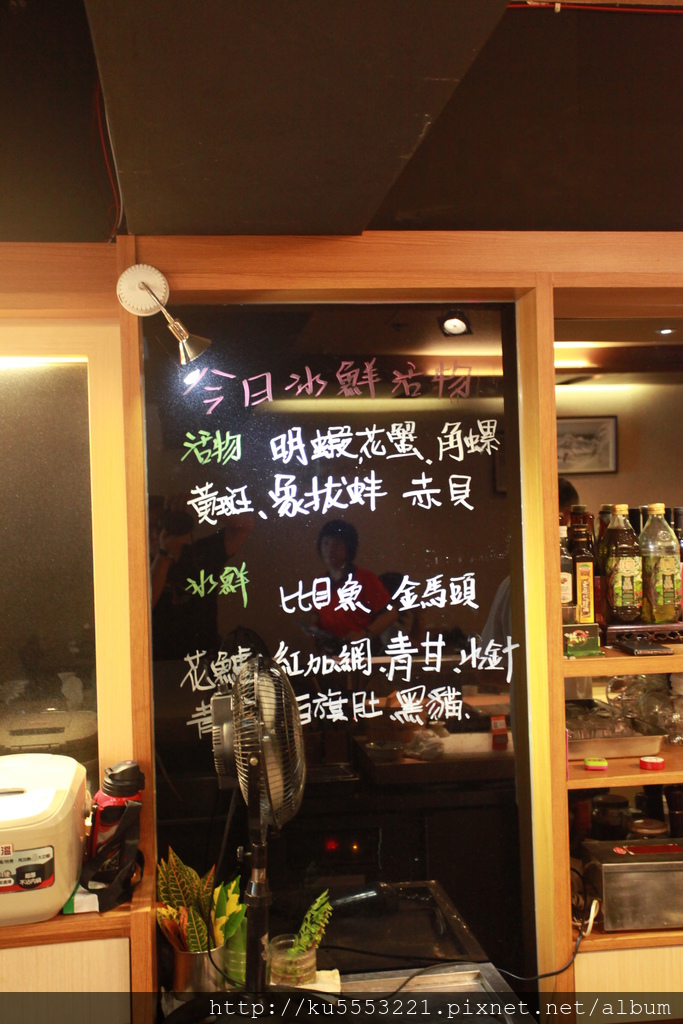 今日冰鮮活物
活物 明蝦花蟹、角螺
黃斑、象拔蚌 赤貝
冰鮮 比目魚、金馬頭
花鱸、紅加網、青甘、水針
青 白旗肚、黑貓、
http://ku5553221.pixnet.net/album